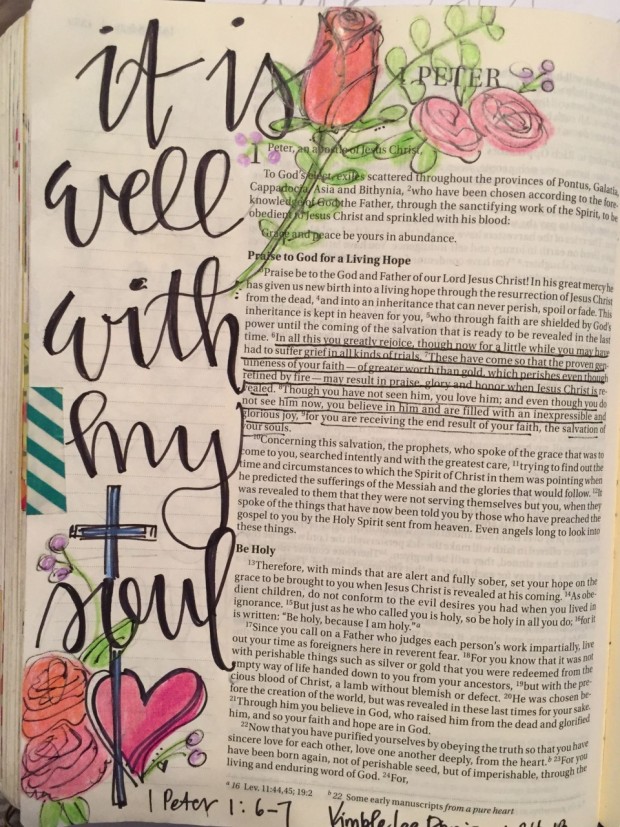 it is
well
with
my
soul
1 Peter 1:6-7
1 PETER
1 Peter, an apostle of Jesus Christ,
To God's elect, exiles scattered throughout the provinces of Pontus, Galatia,
Cappadocia, Asia and Bithynia, 2who have been chosen according to the fore-
knowledge of God the Father, through the sanctifying work of the Spirit, to be
obedient to Jesus Christ and sprinkled with his blood:
Grace and peace be yours in abundance.
Praise to God for a Living Hope
3Praise be to the God and Father of our Lord Jesus Christ! In his great mercy he
has given us new birth into a living hope through the resurrection of Jesus Christ
from the dead, 4and into an inheritance that can never perish, spoil or fade. This
inheritance is kept in heaven for you, 5who through faith are shielded by God's
power until the coming of the salvation that is ready to be revealed in the last
time. 6In all this you greatly rejoice, though now for a little while you may have
had to suffer grief in all kinds of trials. 7These have come so that the proven gen-
uineness of your faith—of greater worth than gold, which perishes even though
refined by fire—may result in praise, glory and honor when Jesus Christ is re-
vealed. 8Though you have not seen him, you love him; and even though you do
not see him now, you believe in him and are filled with an inexpressible and
glorious joy, 9for you are receiving the end result of your faith, the salvation of
your souls.
10Concerning this salvation, the prophets, who spoke of the grace that was to
come to you, searched intently and with the greatest care, 11trying to find out the
time and circumstances to which the Spirit of Christ in them was pointing when
he predicted the sufferings of the Messiah and the glories that would follow. 12It
was revealed to them that they were not serving themselves but you, when they
spoke of the things that have now been told you by those who have preached the
gospel to you by the Holy Spirit sent from heaven. Even angels long to look into
these things.
Be Holy
13Therefore, with minds that are alert and fully sober, set your hope on the
grace to be brought to you when Jesus Christ is revealed at his coming. 14As obe-
dient children, do not conform to the evil desires you had when you lived in
ignorance. 15But just as he who called you is holy, so be holy in all you do; 16for it
is written: "Be holy, because I am holy."a
17Since you call on a Father who judges each person's work impartially, live
out your time as foreigners here in reverent fear. 18For you know that it was not
with perishable things such as silver or gold that you were redeemed from the
empty way of life handed down to you from your ancestors, 19but with the pre-
cious blood of Christ, a lamb without blemish or defect. 20He was chosen be-
fore the creation of the world, but was revealed in these last times for your sake.
21Through him you believe in God, who raised him from the dead and glorified
him, and so your faith and hope are in God.
22Now that you have purified yourselves by obeying the truth so that you have
sincere love for each other, love one another deeply, from the heart.b 23For you
have been born again, not of perishable seed, but of imperishable, through the
living and enduring word of God. 24For,
a 16 Lev. 11:44,45; 19:2 b 22 Some early manuscripts from a pure heart